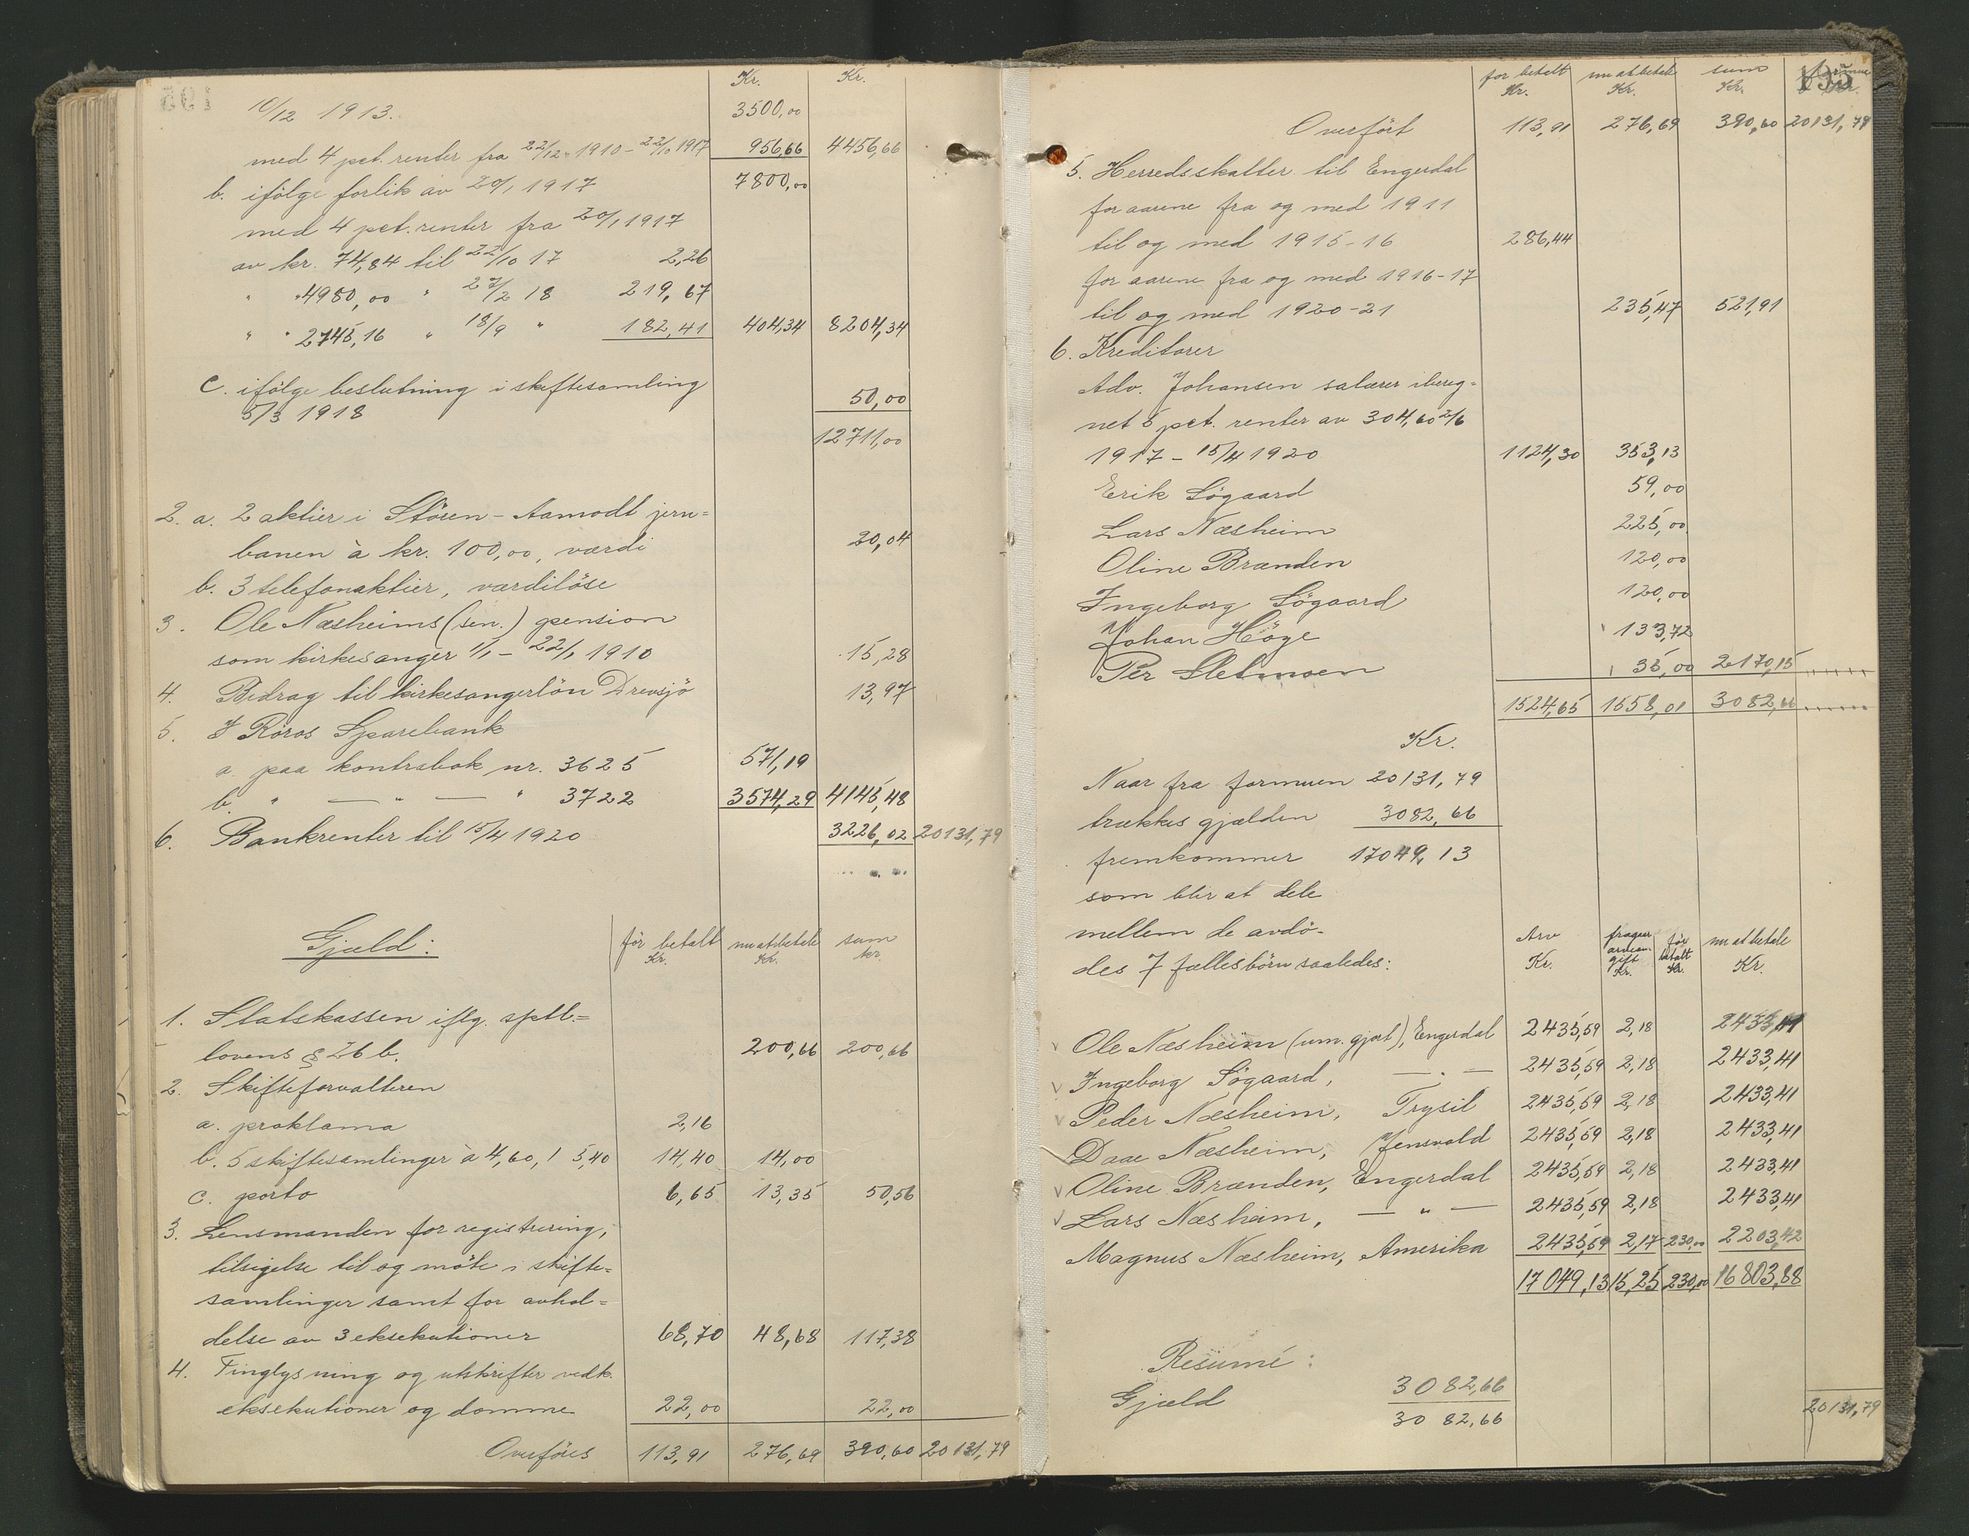 Kr. Kr.
10/12 1913. 3500,00
med 4 pct. renter fra 22/12 1910 - 22/10 1917 956,66 4456,66
b. ifölge forlik av 20/1 1917 7800,00
med 4 pct. renter fra 20/1 1917
av kr. 74,84 til 22/10 17 2,26
" " 4980,00 " 27/2 18 219,67
" " 2745,16 " 18/9 " 182,41 404,34 8204,34
c. ifölge beslutning i skiftesamling
5/3 1918 50,00
12711,00
2. a. 2 aktier i Stören - Aamodt jern=
banen à kr. 100,00, værdi 20,04
b. 3 telefonaktier, værdilöse
3. Ole Næsheims (sen.) pension
som kirkesanger 1/1 - 22/1 1910 15,28
4. Bidrag til kirkesangerlön Drevsjö 13,97
5. I Röros Sparebank
a. paa kontrabok nr. 3625 571,19
b. " — " — " 3722 3574,29 4145,48
6. Bankrenter til 15/4 1920 3226,02 20131,79
Gjæld: för betalt nu at betale sum
Kr. Kr. kr.
1. Statskassen iflg. sptl.=
lovens § 26 b. 200,66 200,66
2. Skifteforvalteren
a. proklama 2,16
b. 5 skiftesamlinger à 4,60, 1 5,40 14,40 14,00
c. porto 6,65 13,35 50,56
3. Lensmanden for registrering,
tilsigelse til og möte i skifte=
samlinger samt for avhol=
delse av 3 eksekutioner 68,70 48,68 117,38
4. Tinglysning og utskrifter vedk.
eksekutioner og domme 22,00 22,00
Overföres 113,91 276,69 390,60 20131,79
195
för betalt nu at betale sum
Kr. Kr. Kr. Kr.
Overfört 113,91 276,69 390,60 20131,79
5. Herredsskatter til Engerdal
for aarene fra og med 1911
til og med 1915-16 286,44
for aarene fra og med 1916-17
til og med 1920-21 235,47 521,91
6. Kreditorer
Adv. Johansen salærer ibereg=
net 5 pct. renter av 304,60 2/6
1917 - 15/4 1920 1124,30 353,13
Erik Sögaard 59,00
Lars Næsheim 225,00
Oline Brænden 120,00
Ingeborg Sögaard 120,00
Johan Höge 133,72
Per Sletmoen 35,00 2170,15
1524,65 1558,01 3082,66
Kr.
Naar fra formuen 20131,79
trækkes gjælden 3082,66
fremkommer 17049,13
som blir at dele
mellem de avdö-
des 7 fællesbörn saaledes:
Arv fragaar arveavgift för betalt nu at betale
Kr. Kr. Kr. Kr.
Ole Næsheim (um. gjort), Engerdal 2435,59 2,18 2433,41
Ingeborg Sögaard, — " — 2435,59 2,18 2433,41
Peder Næsheim, Trysil 2435,59 2,18 2433,41
Daae Næsheim, Jensvold 2435,59 2,18 2433,41
Oline Brænden, Engerdal 2435,59 2,18 2433,41
Lars Næsheim, — " — 2435,59 2,18 2433,41
Magnus Næsheim, Amerika 2435,59 2,17 230,00 2203,42
17049,13 15,25 230,00 16803,88
Resümé:
Gjæld 3082,66
3082,66 20131,79